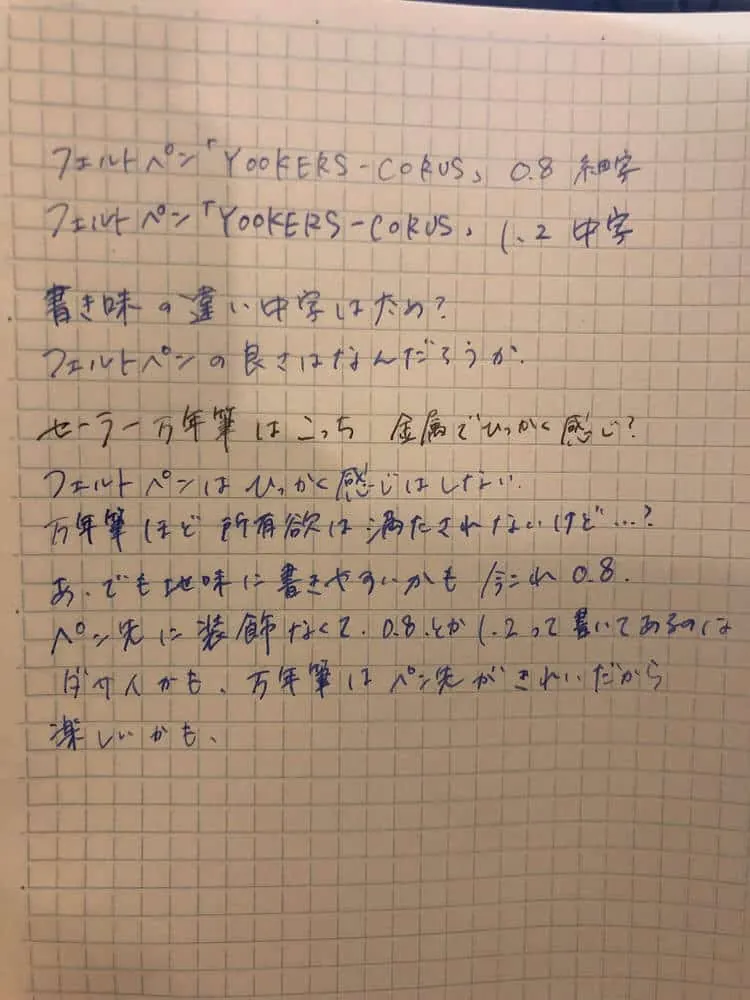 フェルトペン「YOOKERS-CORUS」 0.8 細字
フェルトペン「YOOKERS-CORUS」 1.2 中字
書き味の違い中字はだめ?
フェルトペンの良さはなんだろうか.
セーラー万年筆はこっち 金属でひっかく感じ?
フェルトペンはひっかく感じはしない.
万年筆ほど所有欲は満たされないけど…?
あ、でも地味に書きやすいかも 今これ 0.8.
ペン先に装飾なくて、0.8、とか1.2って書いてあるのは
ダサイかも、万年筆はペン先がきれいだから
楽しいかも、